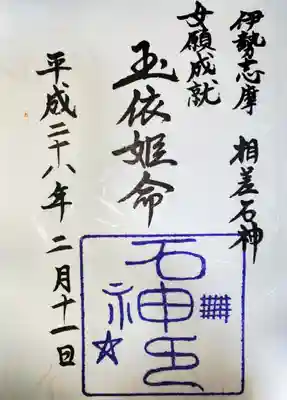 伊勢志摩 相差石神
女願成就
玉依姫命
石神
平成二十八年二月十一日